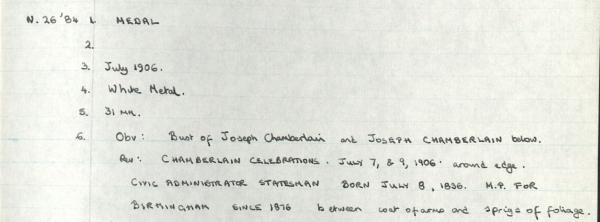 N. 26 '84 1. MEDAL
2.
3. July 1906.
4. White Metal.
5. 31 MM.
6. Obv: Bust of Joseph Chamberlain and JOSEPH CHAMBERLAIN below.
Rev: CHAMBERLAIN CELEBRATIONS. JULY 7, & 9, 1906. around edge.
CIVIC ADMINISTRATOR STATESMAN BORN JULY 8, 1836. M.P. FOR
BIRMINGHAM SINCE 1876 between coat of arms and sprigs of foliage.